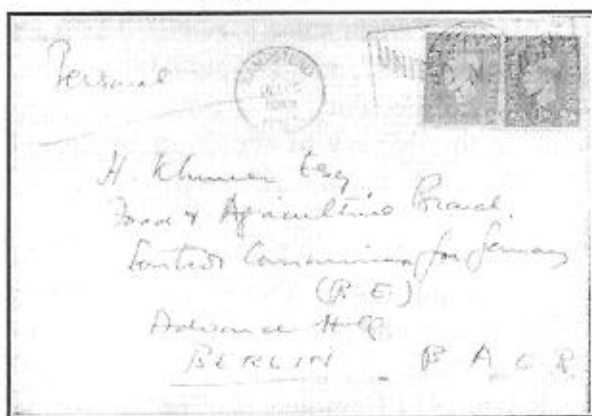 Personal
H. Khuner Esq
Food & Agriculture Branch.
Control Commission for Germany
(B.E.)
Advance HQ
BERLIN B A O R